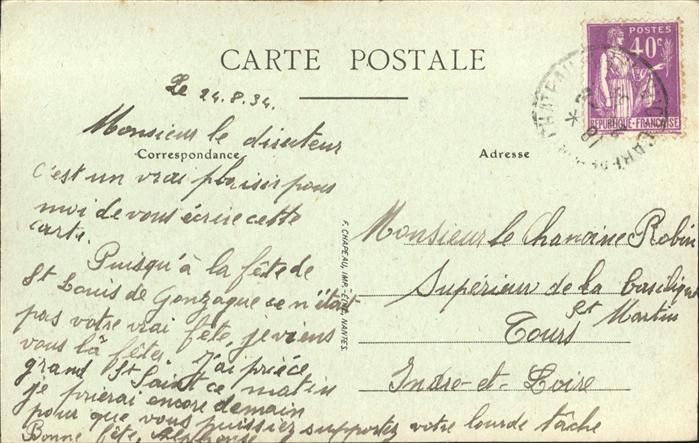 CARTE POSTALE
POSTES
40c
REPUBLIQUE-FRANÇAISE
Le 24.8.34.
Monsieur le directeur
Correspondance
Adresse
C'est un vrai plaisir pour
moi de vous écrire cette
carte.
Puisqu'à la fête de
St Louis de Gonzague ce n'était
pas votre vrai fête, je viens
vous la fêter. J'ai prié ce
grand St Saint ce matin
je prierai encore demain
pour que vous puissiez supporter votre lourde tâche
Bonne fête, Alphonse
F. CHAPEAU, IMP.-EDIT. NANTES.
Monsieur le Chanoine Robin
Supérieur de la basilique
St Martin
Tours
Indre-et-Loire